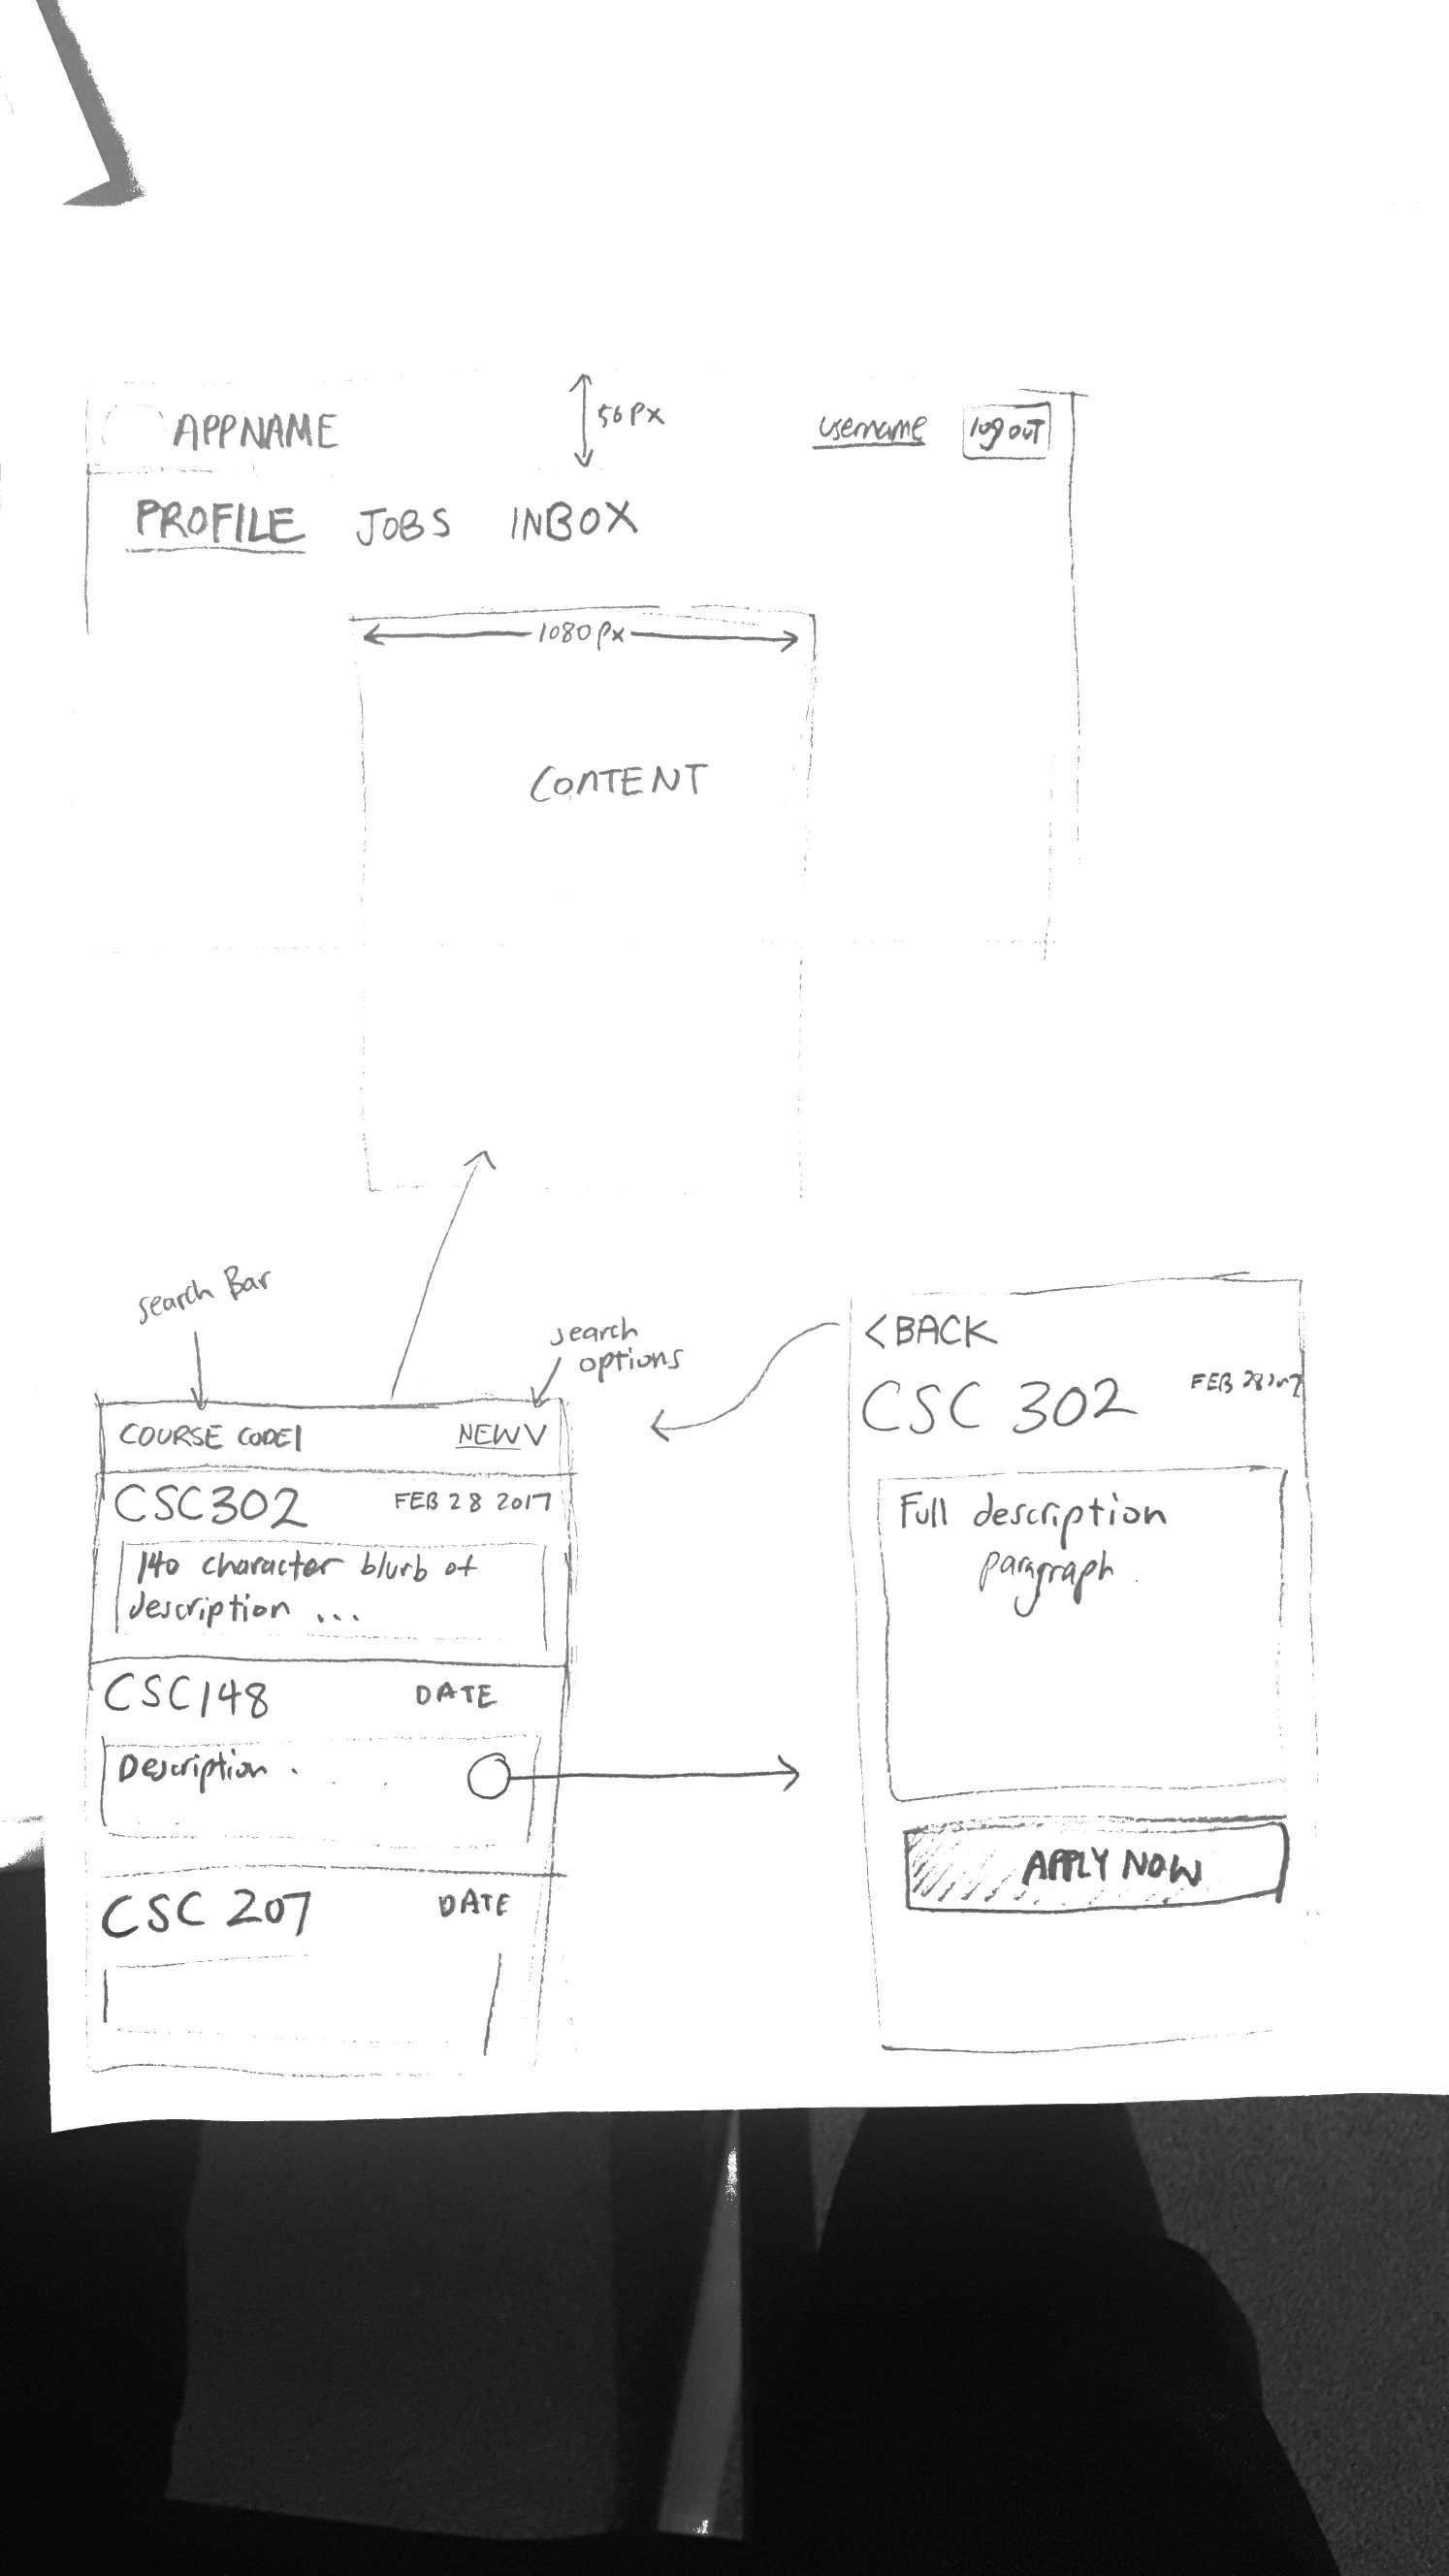 APPNAME
56px
username
log out
PROFILE JOBS INBOX
1080px
CONTENT
search Bar
search
options
COURSE CODE
NEW
CSC302
FEB 28 2017
140 character blurb of
description ...
CSC148
DATE
Description .
CSC 207
DATE
<BACK
CSC 302
FEB 28 2017
Full description
paragraph.
APPLY NOW